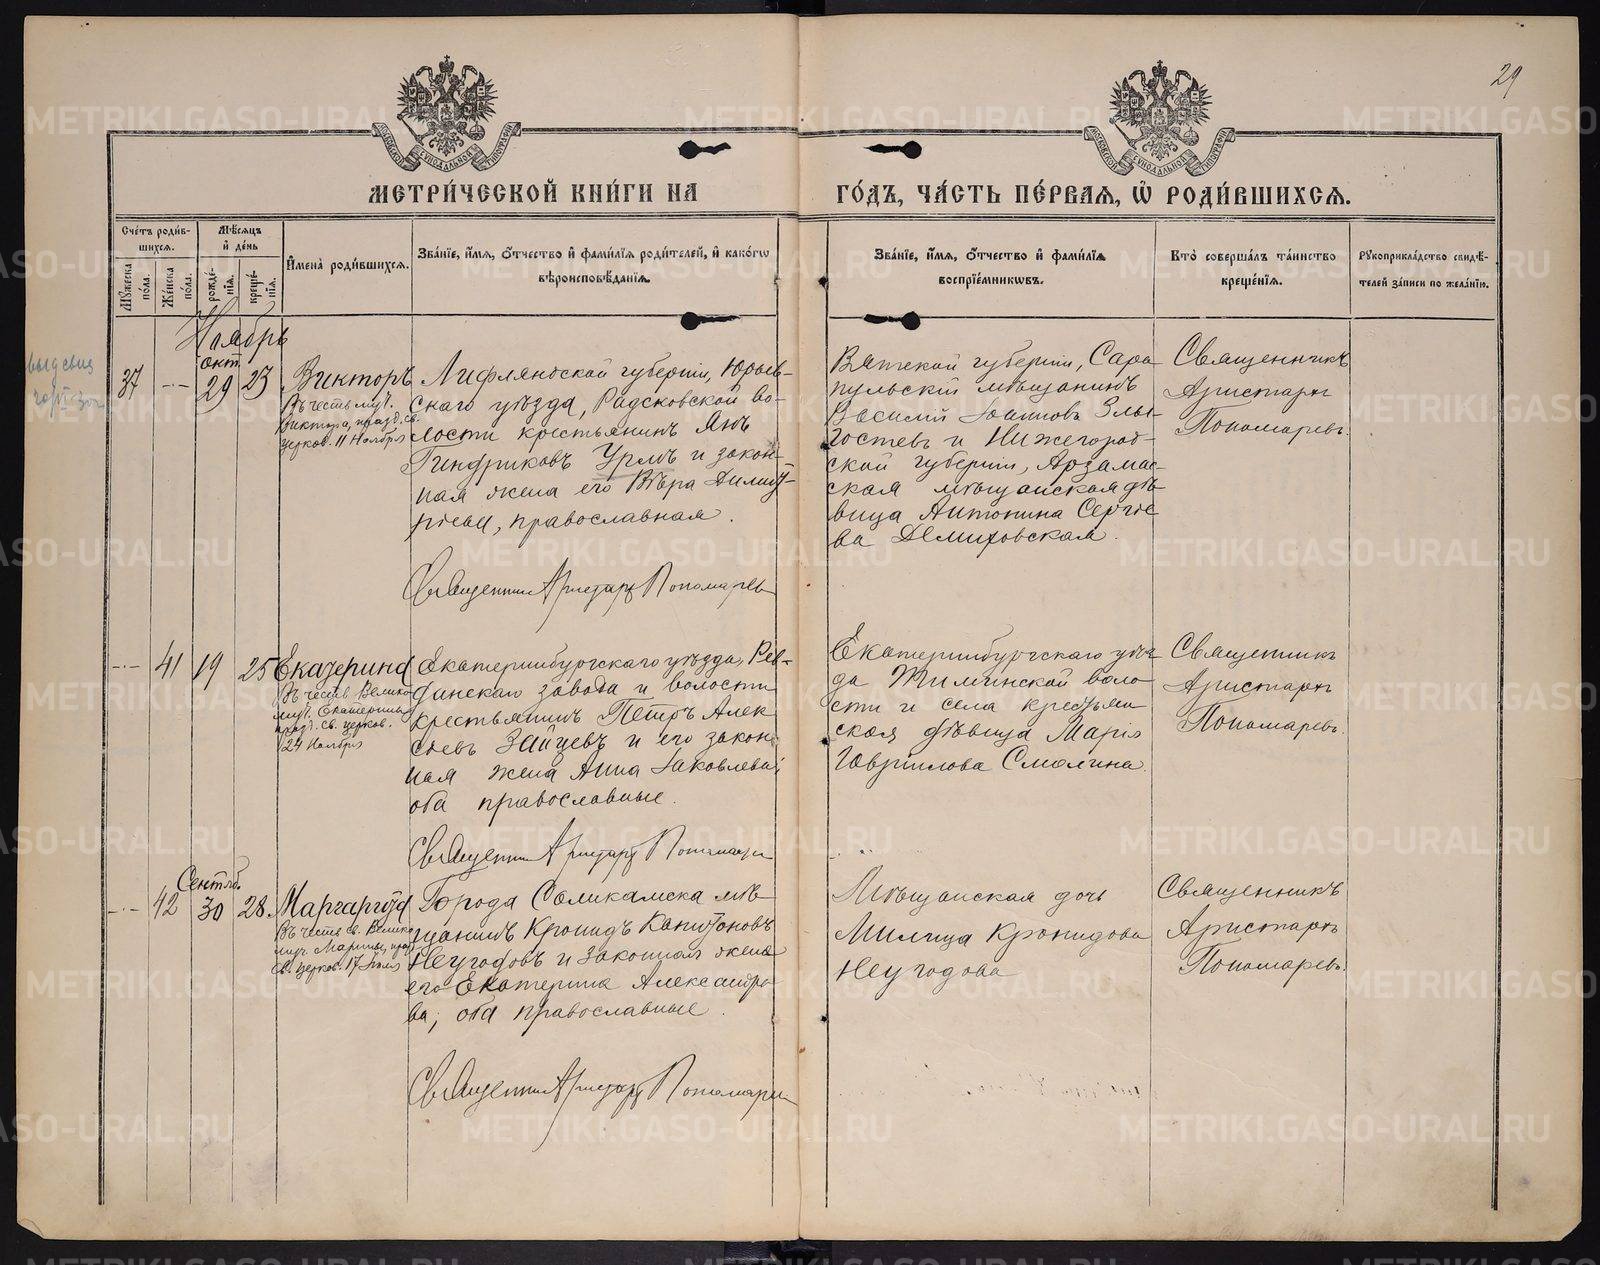 29
МЕТРИ́ЧЕСКОЙ КНИ́ГИ НА ГО́ДЪ, ЧА́СТЬ ПЕ́РВАЯ, Ѽ РОДИ́ВШИХСЯ.
Сче́тъ роди́в-
шихся.
Мѣ́сяцъ
и҆ де́нь
Мꙋжеска
по́ла.
Же́нска
по́ла.
рожде́-
нїѧ.
креще́-
нїѧ.
И҆мена̀ роди́вшихся.
Зва́нїе, и҆́мѧ, ѻ҆́тчество и҆ фами́лїѧ роди́телей, и҆ како́гѡ
вѣроисповѣ́данїѧ.
Зва́нїе, и҆́мѧ, ѻ҆́тчество и҆ фами́лїѧ
воспрїе́мникѡвъ.
Кто̀ соверша́лъ та́инство
креще́нїѧ.
Рꙋкоприкла́дство свидѣ́-
телей за́писи по жела́нїю.
Ноябрь
37
-·-
окт.
29
23
Викторъ
Въ честь муч.
Виктора, празд. св.
церков. 11 Ноября
Лифляндской губерніи, Юрьев-
скаго уѣзда, Радсковской во-
лости крестьянинъ Янъ
Гиндриковъ Урмъ и закон-
ная жена его Вѣра Димит-
ріева, православная.
Священникъ Аристархъ Пономаревъ
Вятской губерніи, Сара-
пульскій мѣщанинъ
Василій Іоанновъ Злы-
гостевъ и Нижегород-
ской губерніи, Арзамас-
ская мѣщанская дѣ-
вица Антонина Сергіе-
ва Демиховская.
Священникъ
Аристархъ
Пономаревъ.
-·-
41
19
25
Екатерина
Въ честь Велико-
муч. Екатерины
празд. св. церков.
24 Ноября
Екатеринбургскаго уѣзда, Рев-
динскаго завода и волости
крестьянинъ Петръ Алек-
сѣевъ Зайцевъ и его закон-
ная жена Анна Іаковлева,
оба православные.
Священникъ Аристархъ Пономаревъ
Екатеринбургскаго уѣз-
да воло-
сти и села крестьян-
ская дѣвица Марія
Гавриилова Смолина.
Священникъ
Аристархъ
Пономаревъ.
-·-
42
Сентяб.
30
28
Маргарита
Въ честь св. Велико-
муч. Марины, празд.
св. церков. 17 Іюля
Города Соликамска мѣ-
щанинъ Кронидъ Капитоновъ
Неугодовъ и законная жена
его Екатерина Александро-
ва, оба православные.
Священникъ Аристархъ Пономаревъ
Мѣщанская дочь
Милица Кронидова
Неугодова
Священникъ
Аристархъ
Пономаревъ.
METRIKI.GASO-URAL.RU